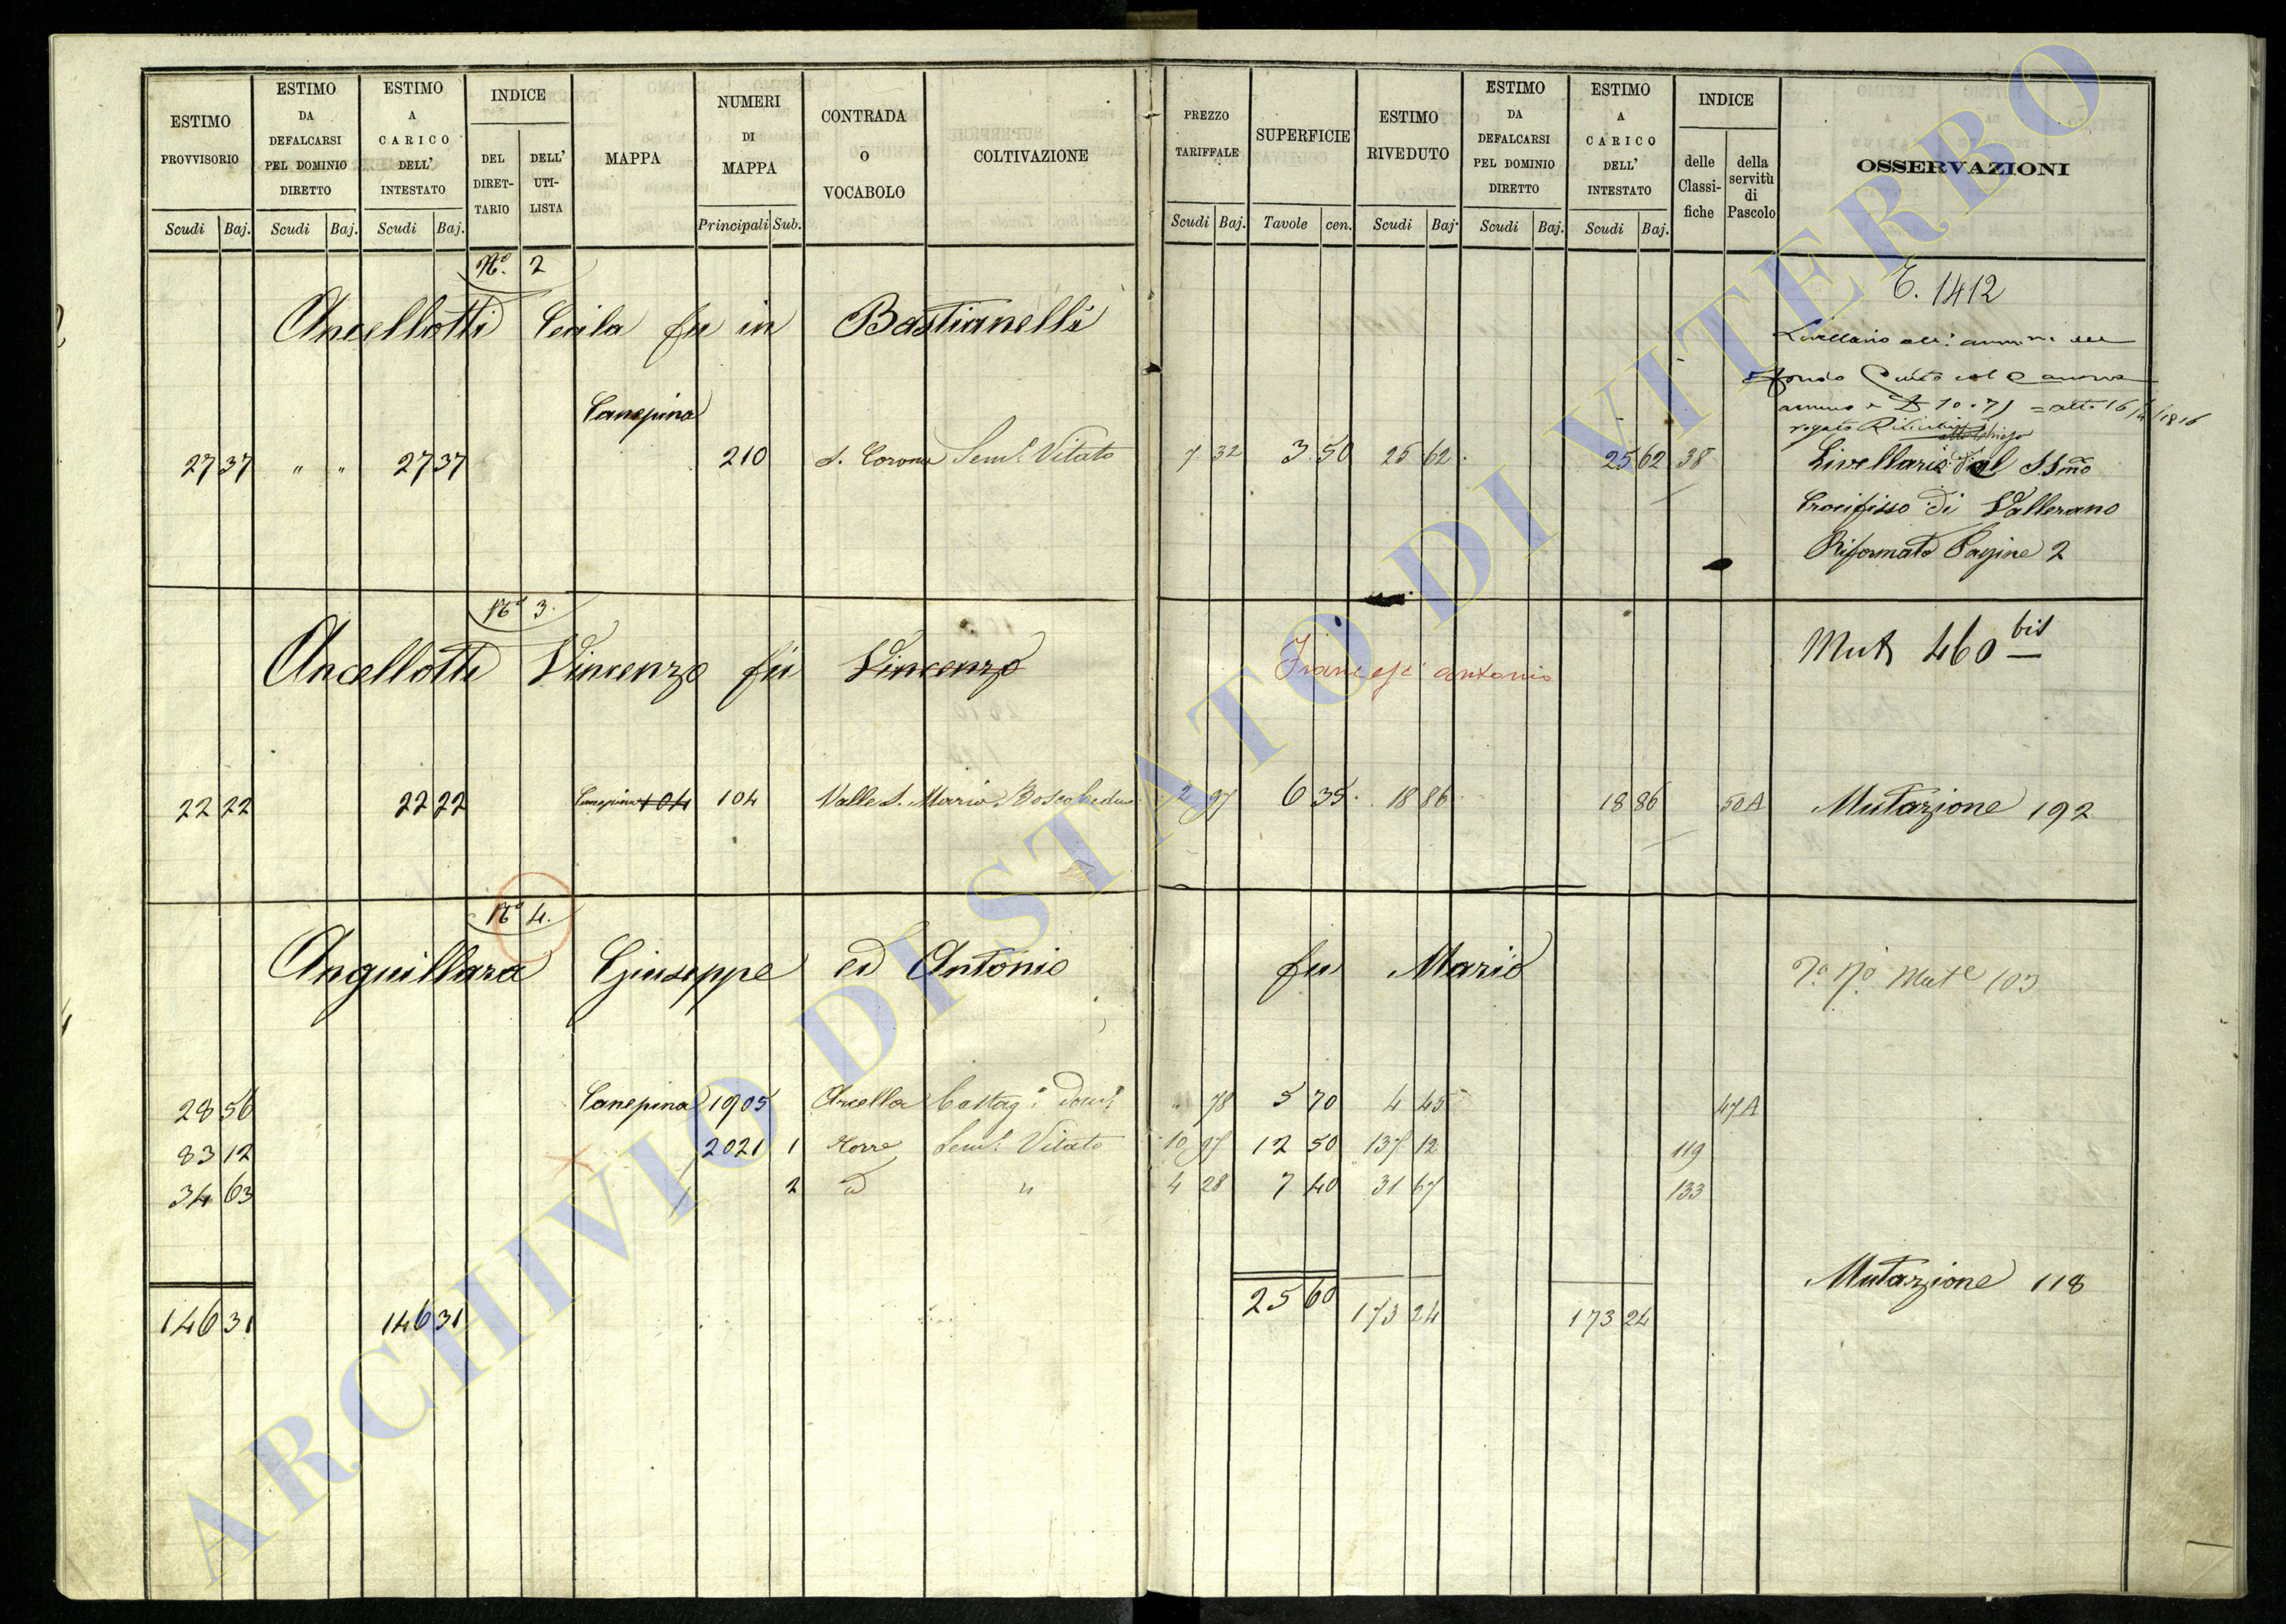 ESTIMO PROVVISORIO Scudi Baj.
ESTIMO DA DEFALCARSI PEL DOMINIO DIRETTO Scudi Baj.
ESTIMO A CARICO DELL' INTESTATO Scudi Baj.
INDICE DEL DIRET- TARIO DELL' UTI- LISTA
MAPPA
NUMERI DI MAPPA Principali Sub.
CONTRADA O VOCABOLO
COLTIVAZIONE
PREZZO TARIFFALE Scudi Baj.
SUPERFICIE Tavole cen.
ESTIMO RIVEDUTO Scudi Baj.
ESTIMO DA DEFALCARSI PEL DOMINIO DIRETTO Scudi Baj.
ESTIMO A CARICO DELL' INTESTATO Scudi Baj.
INDICE delle Classi- fiche della servitù di Pascolo
OSSERVAZIONI
N.º 2
Ancellotti fu in Bastianelli
T. 1412
Canepina
27 37 " " 27 37 210 S. Corona Sem.º Vitato 7 32 3 50 25 62 25 62 38
Livellario al SSmo
Crocifisso di Vallerano
Riformato Pagine 2
Nº 3.
Ancellotti Vincenzo fu Vincenzo
antonio
Mut 460 bis
22 22 22 22 Canepina 104 104 Valle S. Maria Bosco Ceduo 2 97 6 35 18 86 18 86 50A Mutazione 192
Nº 4.
Anguillara Giuseppe ed Antonio fu Mario
28 56 Canepina 1905 Arcella Castagº 78 5 70 4 45 47A
83 12 2021 1 Torre Sem.º Vitato 10 97 12 50 137 12 119
34 63 2 id " 4 28 7 40 31 67 133
Mutazione 118
146 31 146 31 25 60 173 24 173 24
ARCHIVIO DI STATO DI VITERBO